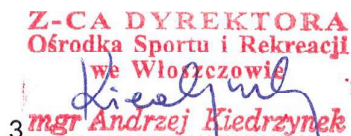 Z-CA DYREKTORA
Ośrodka Sportu i Rekreacji
we Włoszczowie
mgr Andrzej Kiedrzynek
3